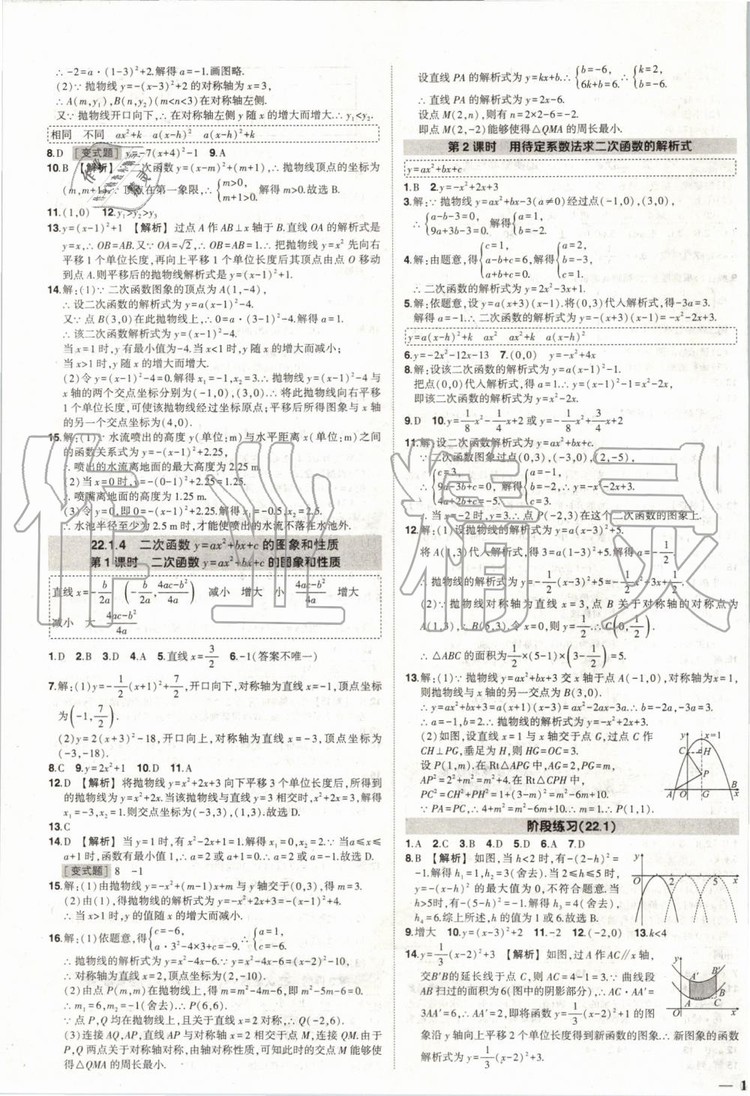 ∴ -2=a·(1-3)²+2.解得 a=-1.画图略.
(2)∵抛物线 y=-(x-3)²+2 的对称轴为 x=3,
∴A(m,y₁),B(n,y₂)(m<n<3)在对称轴左侧.
又∵抛物线开口向下,∴在对称轴左侧 y 随 x 的增大而增大.∴y₁<y₂.
相同 不同 ax²+k a(x-h)² a(x-h)²+k
8.D [变式题] y=-7(x+4)²-1 9.A
10.B 【解析】∵二次函数 y=(x-m)²+(m+1),∴抛物线顶点的坐标为
(m,m+1).∵顶点在第一象限,∴{m>0, m+1>0.∴m>0,故选 B.
11.(1,0) 12.y₁>y₂>y₃
13.y=(x-1)²+1 【解析】过点 A 作 AB⊥x 轴于 B.直线 OA 的解析式是
y=x,∴OB=AB.又∵OA=√2,∴OB=AB=1.∵把抛物线 y=x² 先向右
平移 1 个单位长度,再向上平移 1 个单位长度后其顶点由点 O 移动
到点 A.则平移后的抛物线解析式为 y=(x-1)²+1.
14.解:(1)∵二次函数图象的顶点为 A(1,-4),
∴设二次函数的解析式为 y=a(x-1)²-4.
又∵点 B(3,0)在此抛物线上,∴0=a·(3-1)²-4.解得 a=1.
∴该二次函数的解析式为 y=(x-1)²-4.
当 x=1 时,y 有最小值为-4.当 x<1 时,y 随 x 的增大而减小;
当 x>1 时,y 随 x 的增大而增大.
(2)令 y=(x-1)²-4=0.解得 x₁=-1,x₂=3.∴抛物线 y=(x-1)²-4 与
x 轴的两个交点坐标分别为(-1,0),(3,0).∴将此抛物线向右平移
1 个单位长度,可使该抛物线经过坐标原点;平移后所得图象与 x 轴
的另一个交点坐标为(4,0).
15.解:(1)∵水流喷出的高度 y(单位:m)与水平距离 x(单位:m)之间
的函数关系式为 y=-(x-1)²+2.25,
∴喷出的水流离地面的最大高度为 2.25 m.
(2)当 x=0 时,y=-(0-1)²+2.25=1.25,
∴喷嘴离地面的高度为 1.25 m.
(3)令 y=0,即 0=-(x-1)²+2.25.解得 x₁=-0.5,x₂=2.5.
∴水池半径至少为 2.5 m 时,才能使喷出的水流不落在水池外.
22.1.4 二次函数 y=ax²+bx+c 的图象和性质
第 1 课时 二次函数 y=ax²+bx+c 的图象和性质
直线 x=-b/2a (-b/2a, (4ac-b²)/4a) 减小 增大 小 (4ac-b²)/4a 增大
减小 大 (4ac-b²)/4a
1.D 2.B 3.D 4.A 5.直线 x=3/2 6.-1(答案不唯一)
7.解:(1)y=-1/2(x+1)²+7/2,开口向下,对称轴为直线 x=-1,顶点坐标
为(-1,7/2).
(2)y=2(x+3)²-18,开口向上,对称轴为直线 x=-3,顶点坐标为
(-3,-18).
8.C 9.y=-2x²+1 10.D 11.A
12.D 【解析】将抛物线 y=x²+2x+3 向下平移 3 个单位长度后,所得到
的抛物线为 y=x²+2x.当该抛物线与直线 y=3 相交时,x²+2x=3,解得
x₁=-3,x₂=1.则交点坐标为(-3,3),(1,3).故选 D.
13.C
14.D 【解析】当 y=1 时,有 x²-2x+1=1.解得 x₁=0,x₂=2.∵当 a≤x≤
a+1 时,函数有最小值 1,∴a=2 或 a+1=0.∴a=2 或 a=-1.故选 D.
[变式题] 8 -1
15.解:(1)由抛物线 y=-x²+(m-1)x+m 与 y 轴交于(0,3),得 m=3.
(2)由(1),得抛物线的解析式为 y=-x²+2x+3=-(x-1)²+4.
∴当 x>1 时,y 的值随 x 的增大而减小.
16.解:(1)依题意,得{c=-6, a·3²-4×3+c=-9.∴{a=1, c=-6.
∴抛物线的解析式为 y=x²-4x-6.∵y=x²-4x-6=(x-2)²-10,
∴对称轴为直线 x=2,顶点坐标为(2,-10).
(2)由点 P(m,m)在抛物线上,得 m=m²-4m-6,即 m²-5m-6=0.
∴m₁=6,m₂=-1(舍去).∴P(6,6).
∵点 P,Q 均在抛物线上,且关于直线 x=2 对称,∴Q(-2,6).
(3)连接 AQ,AP,直线 AP 与对称轴 x=2 相交于点 M.由于
P,Q 两点关于对称轴对称,由轴对称性质,可知此时的交点 M 能够使
得△QMA 的周长最小.
设直线 PA 的解析式为 y=kx+b.∴{b=-6, 6k+b=6.∴{k=2, b=-6.
∴直线 PA 的解析式为 y=2x-6.
设点 M(2,n),则有 n=2×2-6=-2.
即点 M(2,-2)能够使得△QMA 的周长最小.
第 2 课时 用待定系数法求二次函数的解析式
y=ax²+bx+c
1.B 2.y=-x²+2x+3
3.解:∵抛物线 y=ax²+bx-3(a≠0)经过点(-1,0),(3,0),
∴{a-b-3=0, 9a+3b-3=0.解得{a=1, b=-2.
4.解:由题意,得{c=1, a-b+c=6, a+b+c=0.解得{a=2, b=-3, c=1.
∴二次函数的解析式为 y=2x²-3x+1.
5.解:依题意,设 y=a(x+3)(x-1).将(0,3)代入解析式,得-3a=3.
解得 a=-1.∴二次函数的解析式为 y=-(x+3)(x-1)=-x²-2x+3.
y=a(x-h)²+k ax² ax²+k a(x-h)²
6.y=-2x²-12x-13 7.(0,0) y=-x²+4x
8.解:设该二次函数的解析式为 y=a(x-1)²-1.
把点(0,0)代入解析式,得 a=1.∴y=(x-1)²-1=x²-2x,
即该二次函数的解析式为 y=x²-2x.
9.D 10.y=1/8x²-1/4x+2 或 y=-1/8x²+3/4x+2
11.解:设二次函数的解析式为 y=ax²+bx+c.
∵二次函数图象过点(0,3),(-3,0),(2,-5),
∴当 x=-2 时,y=3,∴点 P(-2,3)在这个二次函数的图象上.
12.解:(1)设抛物线的解析式为 y=a(x-3)²+5.
将 A(1,3)代入解析式,得 3=a(1-3)²+5.解得 a=-1/2.
∴抛物线的解析式为 y=-1/2(x-3)²+5=-1/2x²+3x+1/2.
(2)∵抛物线的对称轴为直线 x=3,点 B 关于对称轴的对称点为
A(1,3),∴B(5,3).令 x=0,则 y=1/2.∴C(0,1/2).
∴△ABC 的面积为1/2×(5-1)×(3-1/2)=5.
13.解:(1)∵抛物线 y=ax²+bx+3 交 x 轴于点 A(-1,0),对称轴为 x=1,
则抛物线与 x 轴的另一交点为 B(3,0).
∴y=ax²+bx+3=a(x+1)(x-3)=ax²-2ax-3a.∴b=-2a,-3a=3.
∴a=-1,b=2.∴抛物线的解析式为 y=-x²+2x+3.
(2)如图,设直线 x=1 与 x 轴交于点 G,过点 C 作
CH⊥PG,垂足为 H,则 HG=OC=3.
设 P(1,m).在 Rt△APG 中,AG=2,PG=m,
AP²=2²+m²=m²+4.在 Rt△CPH 中,
PC²=CH²+PH²=1+(3-m)²=m²-6m+10.
∵PA=PC,∴4+m²=m²-6m+10.∴m=1.∴P(1,1).
y x=1
C H
P
A O G B x
阶段练习(22.1)
1.A 2.C 3.B 4.C 5.A 6.D 7.D
8.B 【解析】如图,当 h<2 时,有-(2-h)²=
-1.解得 h₁=1,h₂=3(舍去).当 2≤h≤5 时,
y=-(x-h)² 的最大值为 0,不符合题意.当
h>5时,有-(5-h)²=-1.解得 h₃=4(舍去),
h₄=6.综上所述,h 的值为 1 或 6.故选 B.
y
O 2 5 x
9.增大 10.y=(x-2)²+1 11.-2 12.(-2,0) 13.k<4
14.y=1/3(x-2)²+3 【解析】如图,过 A 作 AC∥x 轴,
交B′B的延长线于点 C,则 AC=4-1=3.∵曲线段
AB 扫过的面积为 6(图中的阴影部分),∴AC·AA′=
3AA′=6,∴AA′=2,即将函数 y=1/3(x-2)²+1 的图
象沿 y 轴向上平移 2 个单位长度得到新函数的图象.∴新图象的函数
解析式为 y=1/3(x-2)²+3.
作业精灵
— 1